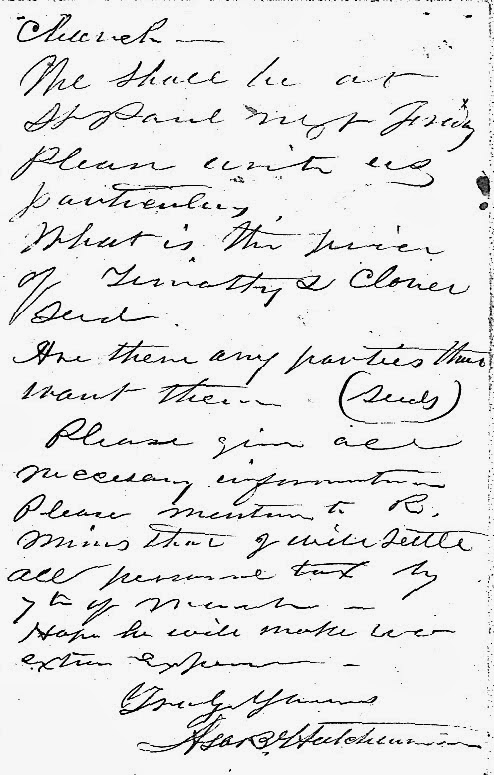 Church —
We shall be at
St Paul next Friday
Please write us
particulars,
What is the price
of Timothy & Clover
Seed.
Are there any parties that
want them (seeds)
Please give all
neccesary information
Please mention to R.
Mims that I will settle
all personal tax by
7th of March —
Hope he will make no
extra Expense —
Truly Yours
Asa B. Hutchinson